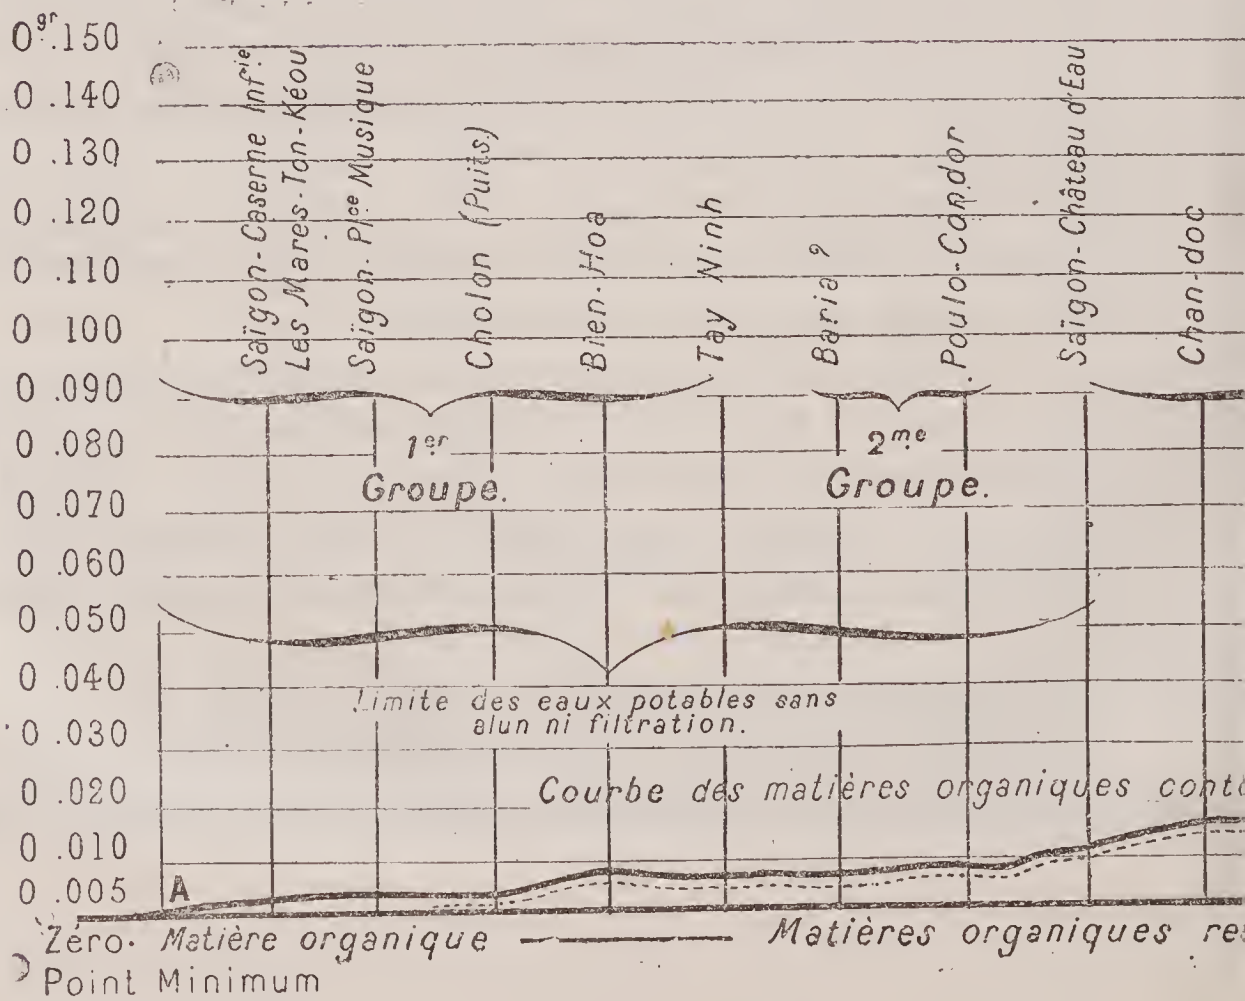 0gr.150
0 .140
0 .130
0 .120
0 .110
0 100
0 .090
0 .080
0 .070
0 .060
0 .050
0 .040
0 .030
0 .020
0 .010
0 .005
Saïgon-Caserne Inf.ie
Les Mares-Ton-Kéou
Saïgon-Pl.ce Musique
Cholon (Puits)
Bien-Hoa
Tay Ninh
Baria ?
Poulo-Condor
Saïgon-Château d'Eau
Chan-doc
1er
Groupe.
2me
Groupe.
Limite des eaux potables sans
alun ni filtration.
Courbe des matières organiques conte
A
Zéro. Matière organique
Matières organiques res
Point Minimum